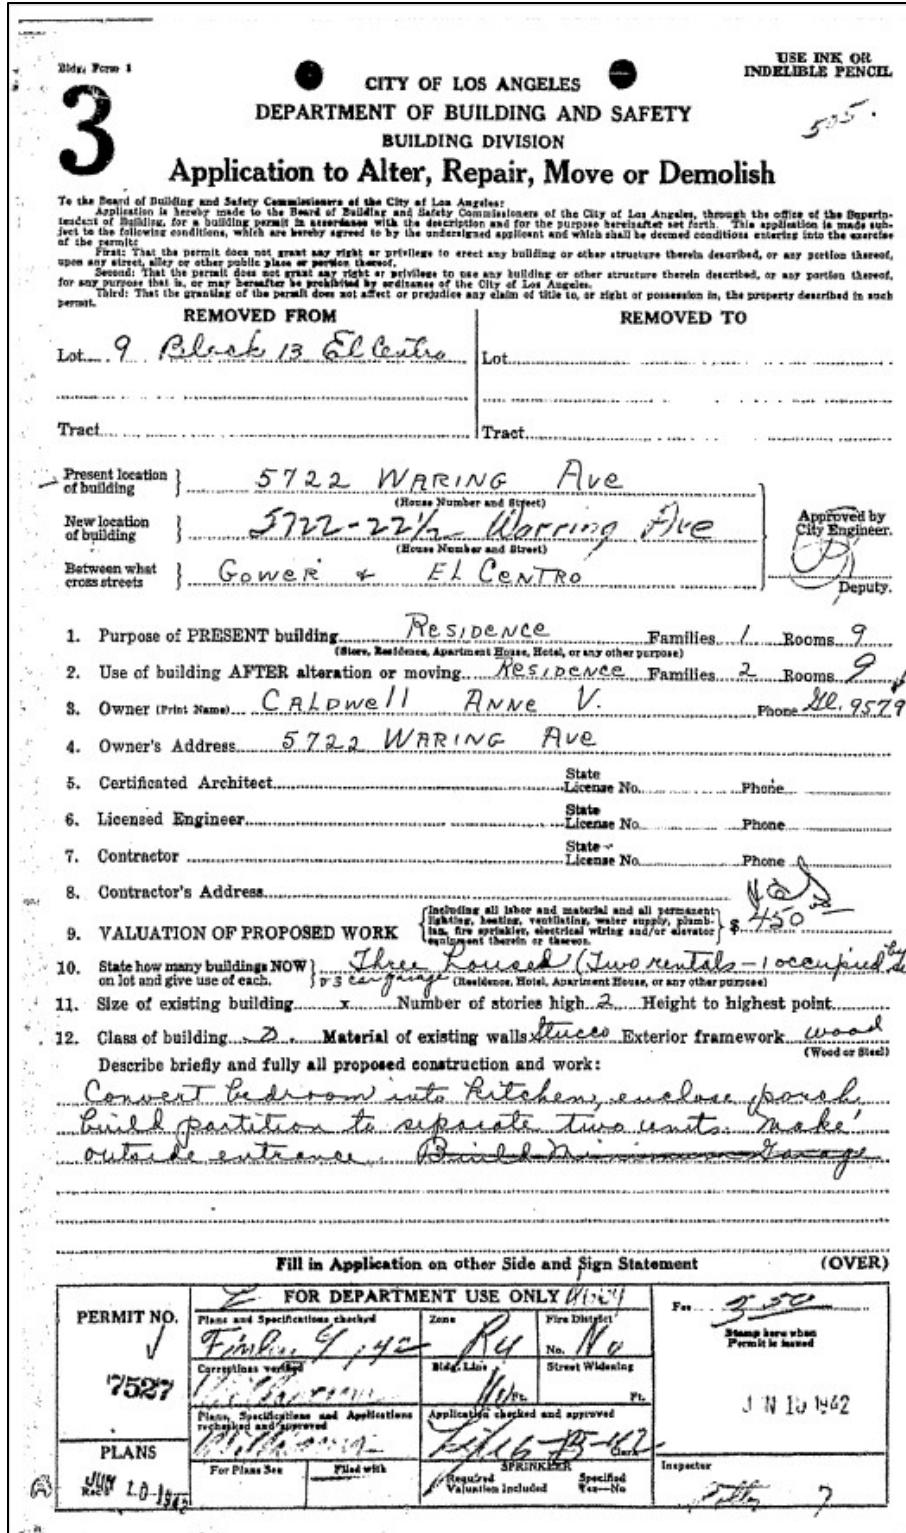 Bldg. Form 1
USE INK OR
INDELIBLE PENCIL
3
CITY OF LOS ANGELES
DEPARTMENT OF BUILDING AND SAFETY
BUILDING DIVISION
Application to Alter, Repair, Move or Demolish
To the Board of Building and Safety Commissioners of the City of Los Angeles:
Application is hereby made to the Board of Building and Safety Commissioners of the City of Los Angeles, through the office of the Superin-
tendent of Building, for a building permit in accordance with the description and for the purpose hereinafter set forth. This application is made sub-
ject to the following conditions, which are hereby agreed to by the undersigned applicant and which shall be deemed conditions entering into the exercise
of the permit:
First: That the permit does not grant any right or privilege to erect any building or other structure therein described, or any portion thereof,
upon any street, alley or other public place or portion thereof.
Second: That the permit does not grant any right or privilege to use any building or other structure therein described, or any portion thereof,
for any purpose that is, or may hereafter be prohibited by ordinance of the City of Los Angeles.
Third: That the granting of the permit does not affect or prejudice any claim of title to, or right of possession in, the property described in such
permit.
REMOVED FROM
REMOVED TO
Lot 9 Block 13 El Centro
Lot
Tract
Tract
Present location of building } 5722 WARING Ave
(House Number and Street)
New location of building } 5722-22½ Warring Ave
(House Number and Street)
Between what cross streets } GOWER & EL CENTRO
Approved by
City Engineer.
Deputy.
1. Purpose of PRESENT building RESIDENCE Families 1 Rooms 9
(Store, Residence, Apartment House, Hotel, or any other purpose)
2. Use of building AFTER alteration or moving RESIDENCE Families 2 Rooms 9
3. Owner (Print Name) CALDWELL ANNE V. Phone Gl. 9579
4. Owner's Address 5722 WARING AVE
5. Certificated Architect State License No. Phone
6. Licensed Engineer State License No. Phone
7. Contractor State License No. Phone
8. Contractor's Address
9. VALUATION OF PROPOSED WORK {Including all labor and material and all permanent lighting, heating, ventilating, water supply, plumbing, fire sprinkler, electrical wiring and/or elevator equipment therein or thereon. $450
10. State how many buildings NOW on lot and give use of each. } Three houses (Two rentals - 1 occupied by
3 car garage (Residence, Hotel, Apartment House, or any other purpose)
11. Size of existing building x Number of stories high 2 Height to highest point
12. Class of building D Material of existing walls Stucco Exterior framework wood
(Wood or Steel)
Describe briefly and fully all proposed construction and work:
Convert bedroom into kitchen, enclose porch
build partition to separate two units. Make
outside entrance. Build Garage
Fill in Application on other Side and Sign Statement (OVER)
PERMIT NO.
7527
PLANS
JUN 10 1942
FOR DEPARTMENT USE ONLY
Plans and Specifications checked
Zone R4
Fire District
No. No
Corrections verified
Bldg. Line
No Ft.
Street Widening
Ft.
Plans, Specifications and Applications
rechecked and approved
Application checked and approved
Clerk
For Plans See
Filed with
SPRINKLER
Required
Valuation Included
Specified
Yes—No
Fee 3.50
Stamp here when
Permit is issued
Inspector
7